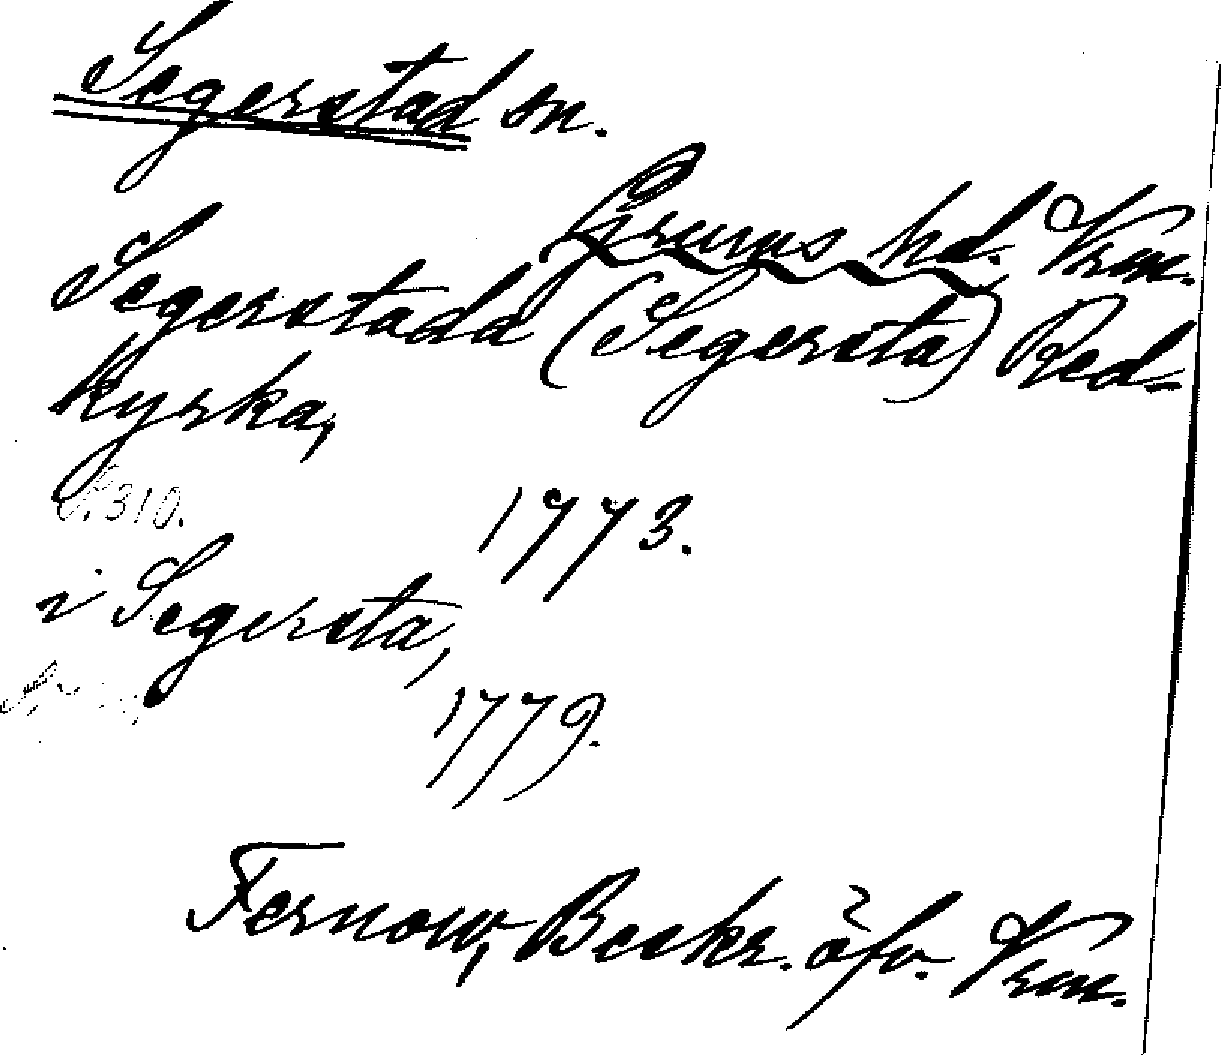 Segerstad sn.
Grums hd. Vrm.
Segerstada (Segersta) Red-
kyrka,
S. 310.
1773.
i Segersta,
1779.
Fernow, Beskr. öfv. Vrm.